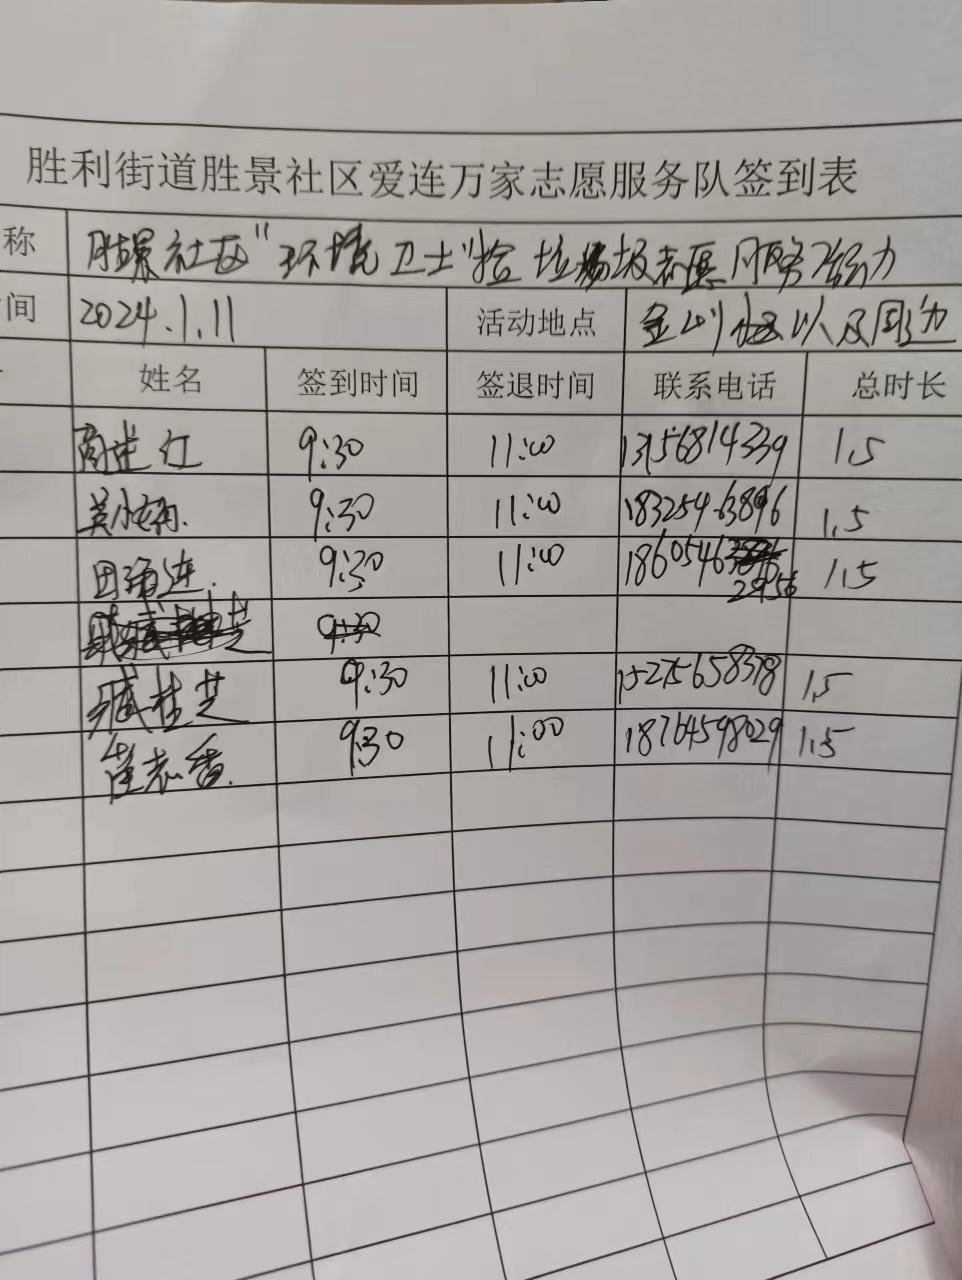 胜利街道胜景社区爱连万家志愿服务队签到表
称 胜景社区"环境卫士"捡垃圾志愿服务活动
间 2024.1.11 活动地点 金山小区以及周边
姓名 签到时间 签退时间 联系电话 总时长
商建红 9:30 11:00 13156814339 1.5
吴小娟. 9:30 11:00 18325463896 1.5
田海连. 9:30 11:00 18605462956 1.5
芝 9:30
臧桂芝 9:30 11:00 15275658378 1.5
崔志香. 9:30 11:00 18764598029 1.5